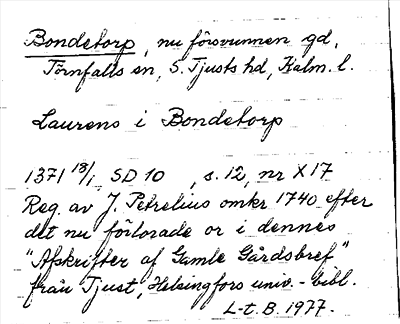 Bondetorp, nu försvunnen gd,
Törnfalls sn, S. Tjusts hd, Kalm. l.
Laurens i Bondetorp
1371 13/1, SD 10, s. 12, nr X 17
Reg. av J. Petrelius omkr 1740 efter
det nu förlorade or i dennes
"Afskrifter af Gamle Gårdsbref"
från Tjust, Helsingfors univ.-bibl.
L-t. B. 1977.